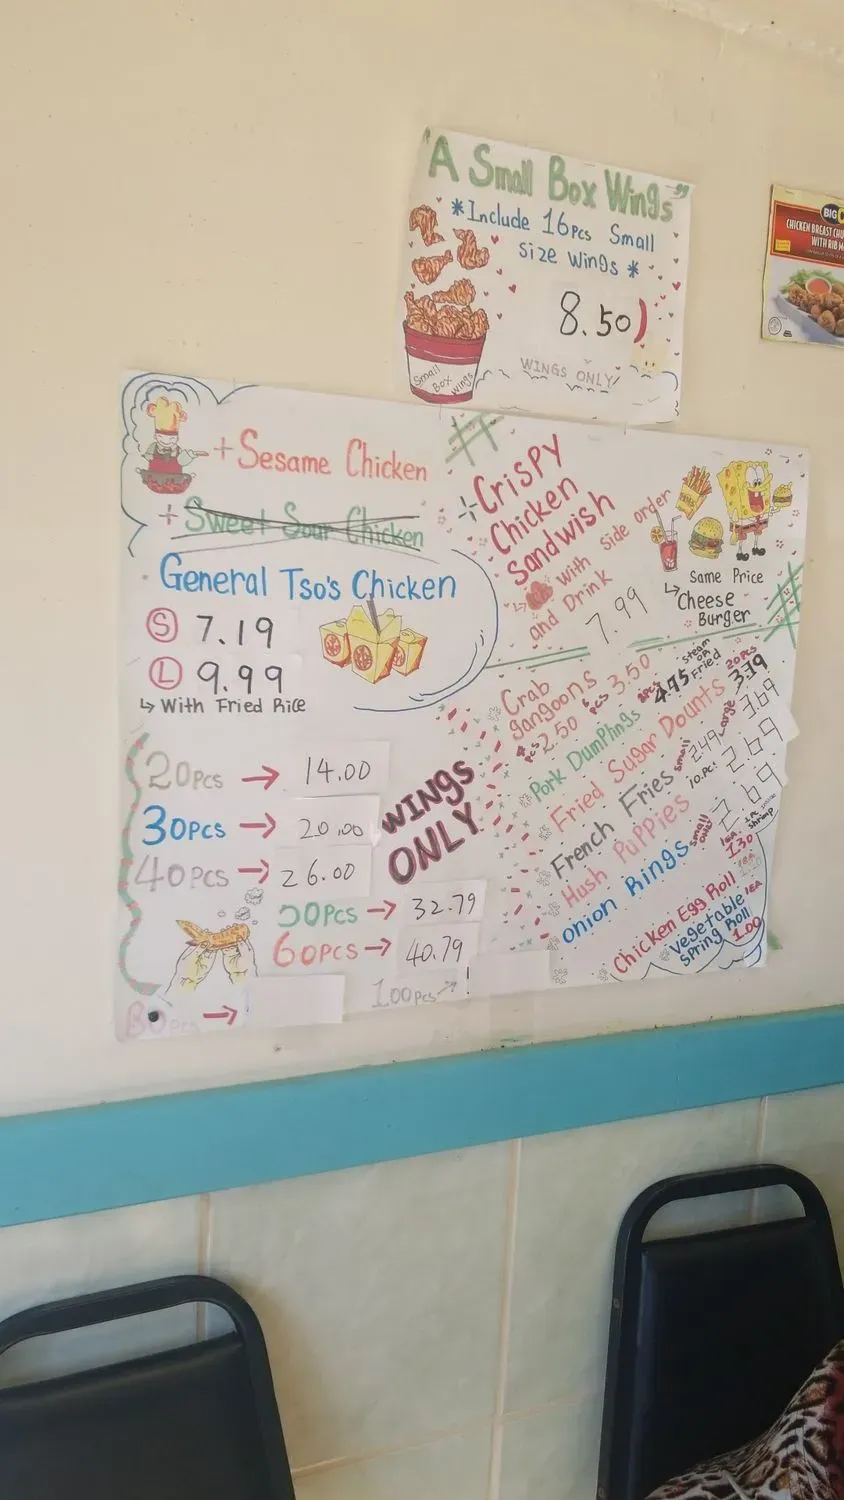 "A Small Box Wings"
*Include 16pcs Small
size wings *
8.50)
WINGS ONLY!
Small
Box
wings
BIG
CHICKEN BREAST CHU
WITH RIB M
+ Sesame Chicken
+ Sweet Sour Chicken
General Tso's Chicken
S 7.19
L 9.99
↳ With Fried Rice
20pcs → 14.00
30pcs → 20.00
40pcs → 26.00
50pcs → 32.79
60pcs → 40.79
80pcs →
100pcs → !
WINGS
ONLY
+Crispy
Chicken
Sandwish
↳ with side order
and Drink
7.99
Same Price
↳ Cheese
Burger
Crab
gangoons
pcs 2.50 6 pcs 3.50
Pork Dumplings 8pcs 4.75 steam or Fried
Fried Sugar Dounts 20pcs 3.79
French Fries small 2.49 Large 3.69
Hush Puppies 10.pc! 2.69
Onion Rings small only 2.69
Chicken Egg Roll 1EA 1.30
Vegetable
Spring Roll 1EA 1.00